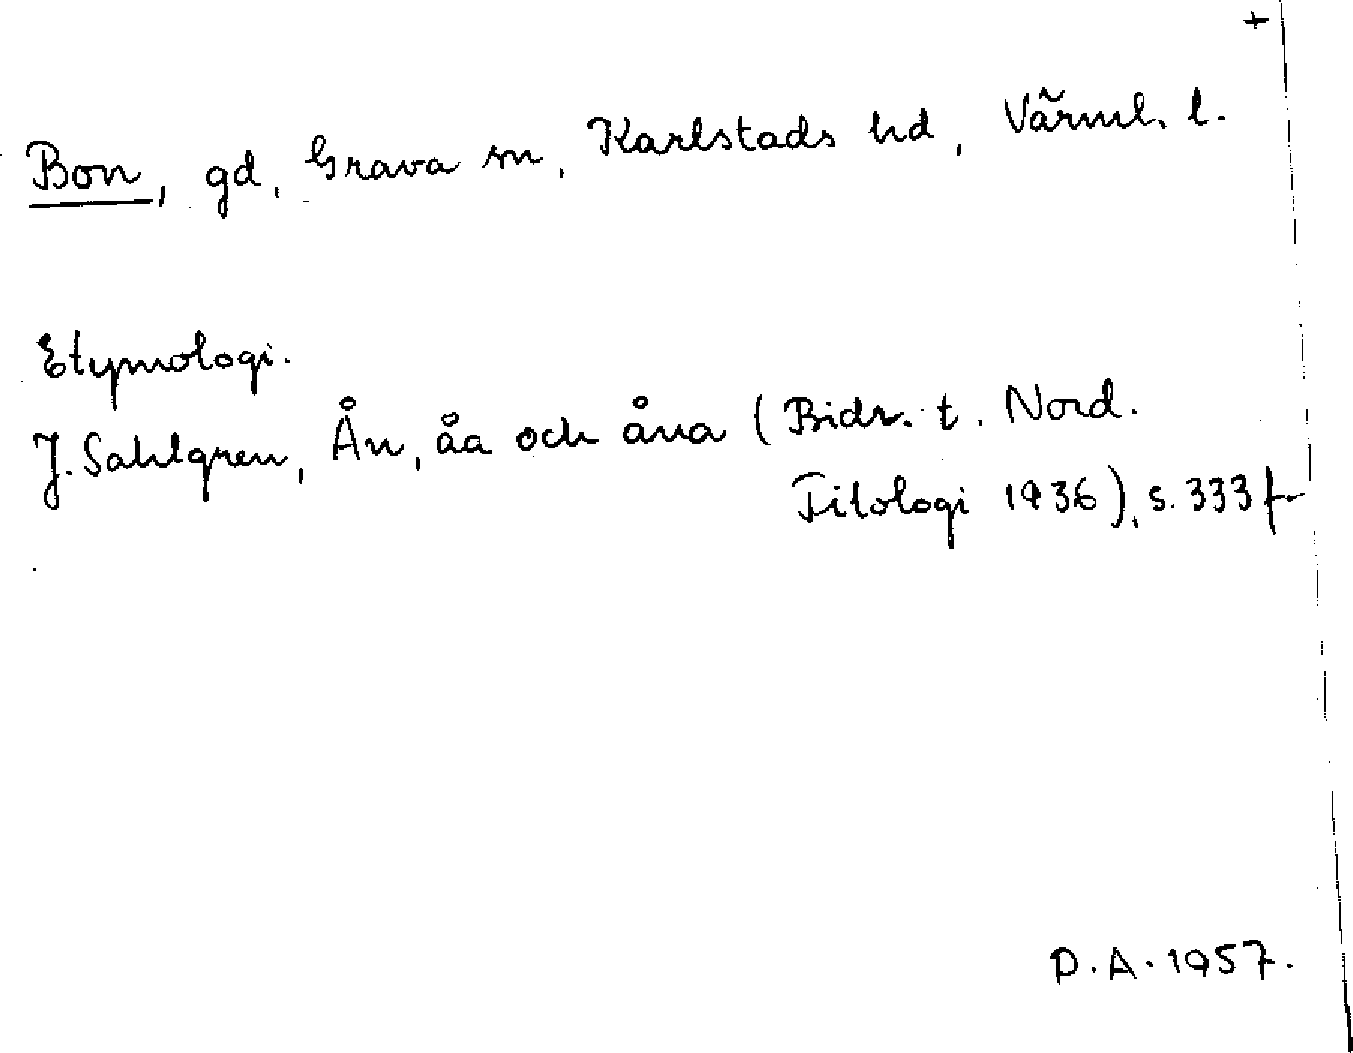 +
Bon, gd, Grava sn, Karlstads hd, Värml. l.
Etymologi.
J. Sahlgren, Ån, åa och åna (Bidr. t. Nord.
Filologi 1936), s. 333 f.
D.A. 1957.